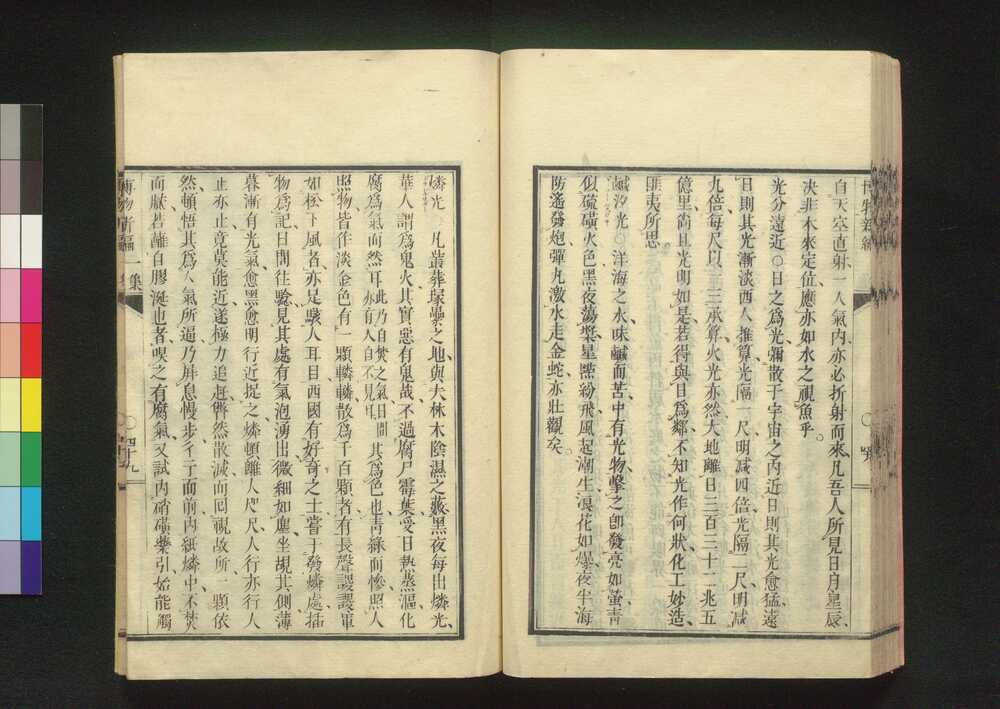 博物新編
自天空直射一人氣内亦必折射而來凡吾人所見日月星辰、
決非本來定位應亦如水之視魚乎。
光分遠近○日之爲光彌散于宇宙之内近日則其光愈猛遠
日則其光漸淡西人推算光隔一尺明減四倍光隔二尺明減
九倍每尺以三承算火光亦然大地離日三百三十二兆五
億里尚且光明如是若得與日爲鄰不知光作何狀化工妙造、
匪夷所思。
鹹汐光○洋海之水味鹹而苦中有光物擊之卽發亮如螢青
似硫磺火色黑夜蕩槳星點紛飛風起潮生浪花如爆夜半海
防遙發炮彈丸激水走金蛇亦壯觀矣。
燐光 凡叢葬塚壘之地與大林木陰濕之藪黑夜每出燐光、
華人謂爲鬼火其實惡有鬼哉不過腐尸霉葉受日熱蒸漚化
腐爲氣而然耳此乃自焚之氣日間亦有人自不見耳其爲色也青綠而慘照人
照物皆作淡金色有一顆轔轔散爲千百顆者有長聲謖謖軍
如松下風者亦足駭人耳目西國有好奇之士嘗于發燐處插
物爲記日間往驗見其處有氣泡湧出微細如塵坐覘其側薄
暮漸有光氣愈黑愈明行近捉之燐頓離人咫尺人行亦行人
止亦止竟莫能近遂極力追赶劈然散滅而回視故所一顆依
然頓悟其爲人氣所逼乃屏息慢步彳亍而前内紙燐中不焚
而膩若蘸白膠涎也者嗅之有腐氣又試内硝磺藥引始能觸
博物新編一集
四十九